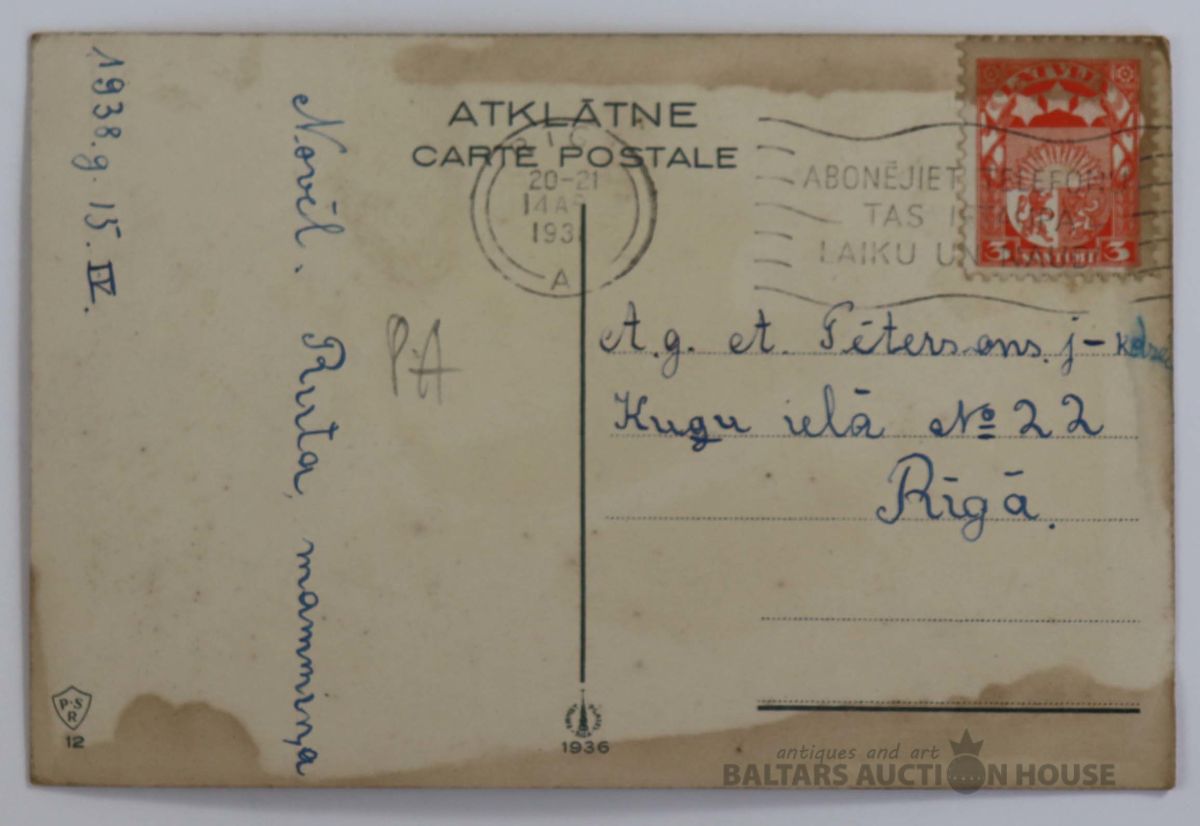 1938.g. 15. IV.
Novēl. Ruta, mammiņa
P.A
ATKLĀTNE
CARTE POSTALE
20-21
A
ABONĒJIET
TAS
LAIKU UN
3 SANTIMI 3
A.g. A. Pētersons. j-k
Kuģu ielā № 22
Rīgā.
P·S
R
12
1936
antiques and art
BALTARS AUCTION HOUSE